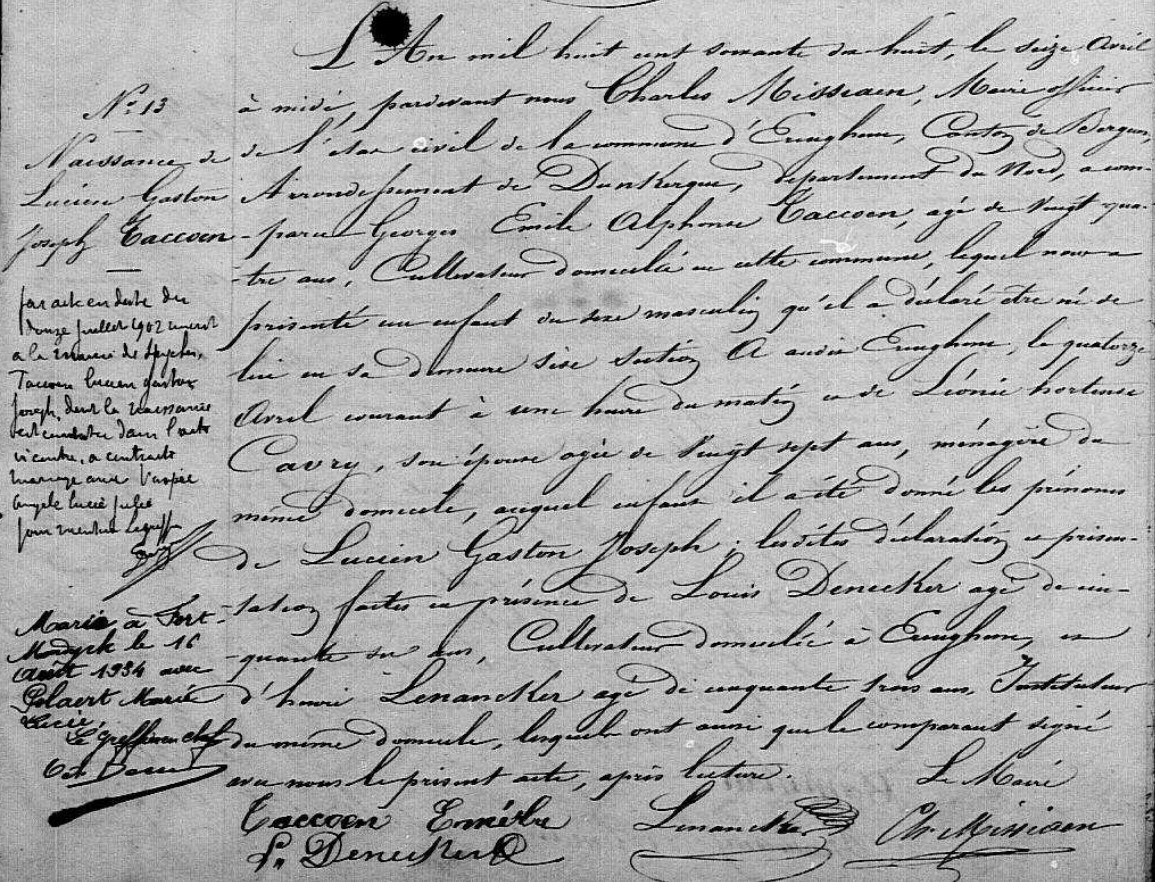 L'An mil huit cent soixante dix huit, le seize Avril
à midi, pardevant nous Charles Missiaen, Maire officier
de l'état civil de la commune d'Eringhem, Canton de Bergues,
Arrondissement de Dunkerque, département du Nord, a com-
-paru Georges Emile Alphonse Taccoen, agé de Vingt qua-
-tre ans, Cultivateur domicilié en cette commune, lequel nous a
présenté un enfant du sexe masculin qu'il a déclaré être né de
lui en sa demeure sise Section A audit Eringhem, le quatorze
Avril courant à une heure du matin et de Léonie hortense
Cavry, son épouse agée de Vingt sept ans, ménagère du
même domicile, auquel enfant il a été donné les prénoms
de Lucien Gaston Joseph; lesdites déclaration et présen-
-tation faites en présence de Louis Denecker agé de cin-
-quante six ans, Cultivateur domicilié à Eringhem, et
d'henri Lenancker agé de cinquante trois ans, Instituteur
du même domicile, lesquels ont ainsi que le comparant signé
avec nous le présent acte, après lecture.
Le Maire
Taccoen Lenancker Ch. Missiaen
L. Denecker
No. 13
Naissance de
Lucien Gaston
Joseph Taccoen
par acte en date du
douze juillet 1902 inscrit
a la mairie de
Taccoen lucien gaston
joseph, dont la naissance
est constatée dans l'acte
ci contre, a contracté
mariage avec
angele lucie julie
pour mention Le greffier
Marié à Fort-
Mardyck le 16
août 1934 avec
Marie
Lucie.
Le greffier en chef